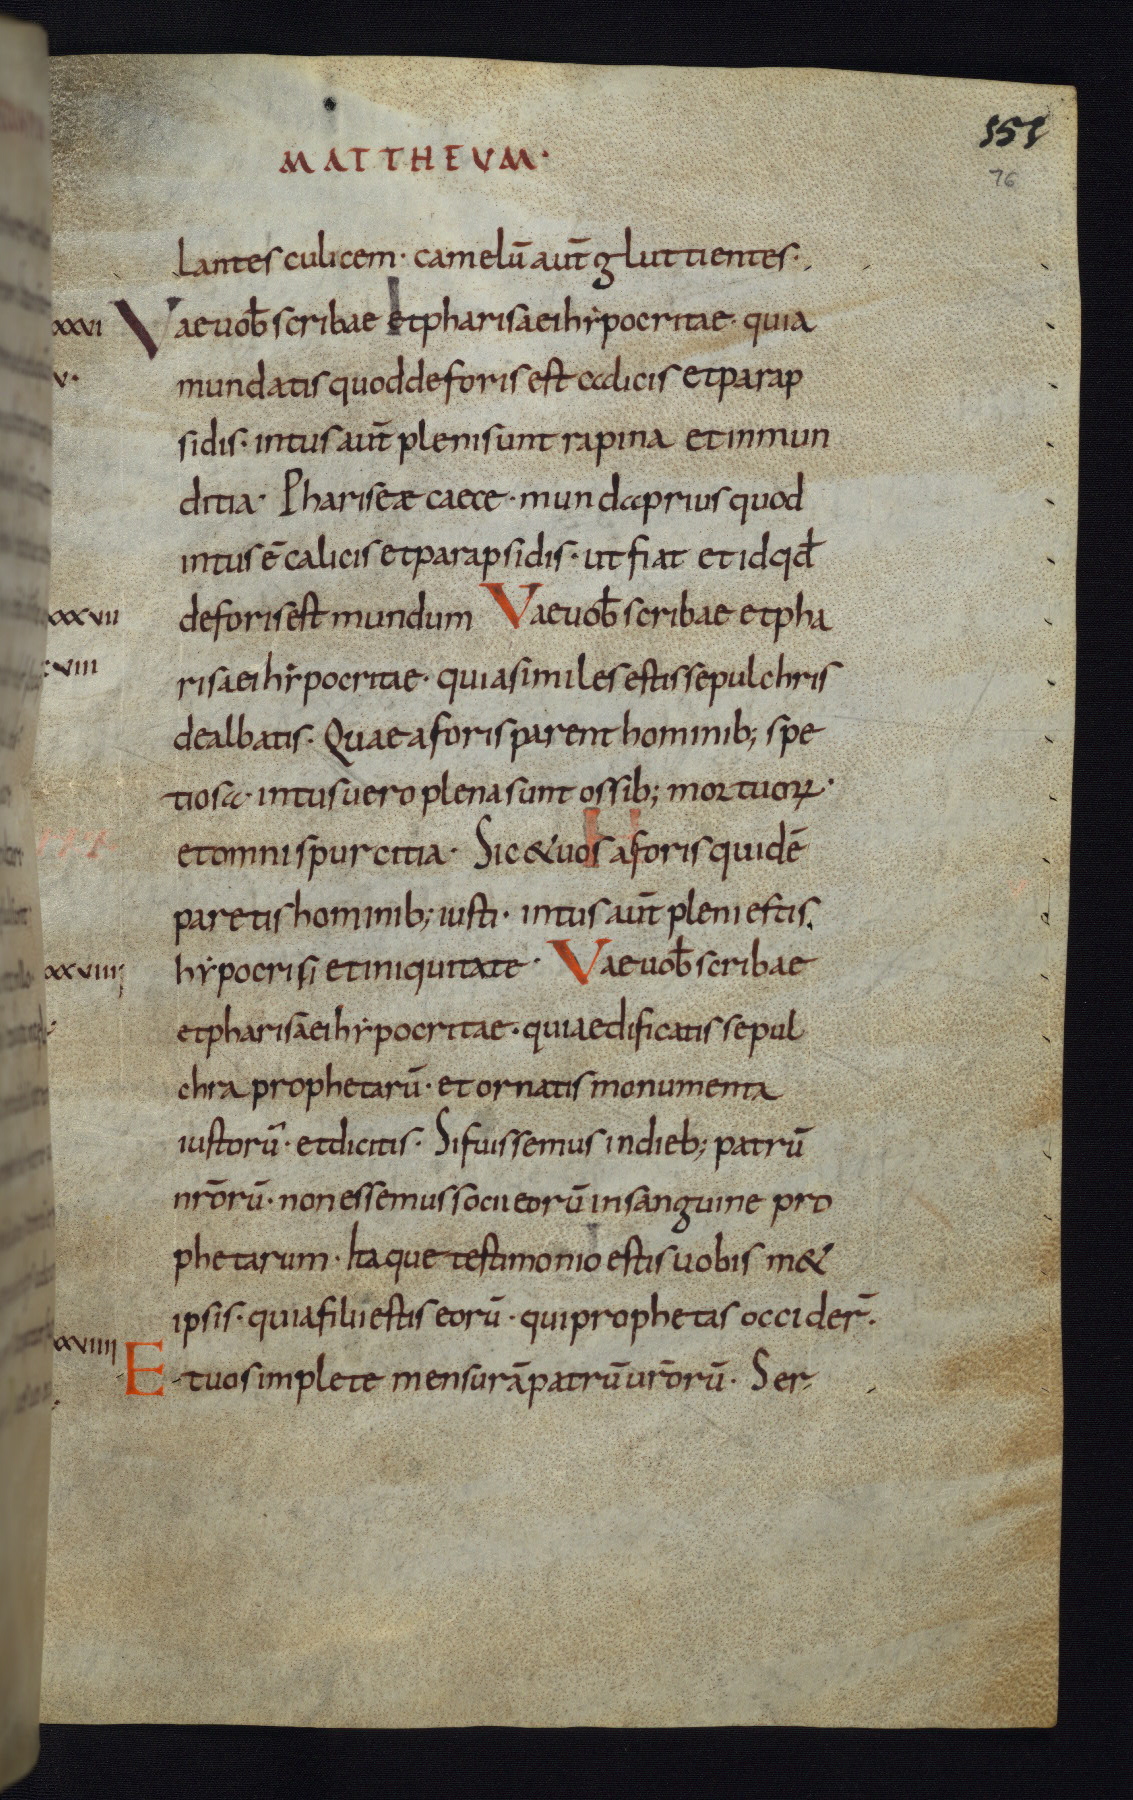 MATTHEUM·
151
76
lantes culicem· camelū aut̄ gluttientes·
xxxvi Vae uob̄ scribae et pharisaei hẏpocritae· quia
v· mundatis quod deforis est calicis et parap
sidis· intus aut̄ pleni sunt rapina et inmun
ditia· Phariseæ caece· munda prius quod
intus ē calicis et parapsidis· ut fiat et id qd̄
xxxvii deforis est mundum Vae uob̄ scribae et pha
viii risaei hẏpocritae· quia similes estis sepulchris
dealbatis· Quae aforis parent hominib; spe
tiosa· intus uero plena sunt ossib; mortuoꝝ·
et omni spurcitia· Sic & uos aforis quidē
paretis hominib; iusti· intus aut̄ pleni estis
xxviiii hẏpocrisi et iniquitate· Vae uob̄ scribae
et pharisaei hẏpocritae· quia edificatis sepul
chra prophetarū· et ornatis monumenta
iustorū· et dicitis· Si fuissemus in dieb; patrū
nr̄orū· non essemus socii eorū in sanguine pro
phetarum· Itaque testimonio estis uobis m&
ipsis· quia filii estis eorū· qui prophetas occider̄·
xxviiii Et uos implete mensurā patrū ur̄orū· Ser